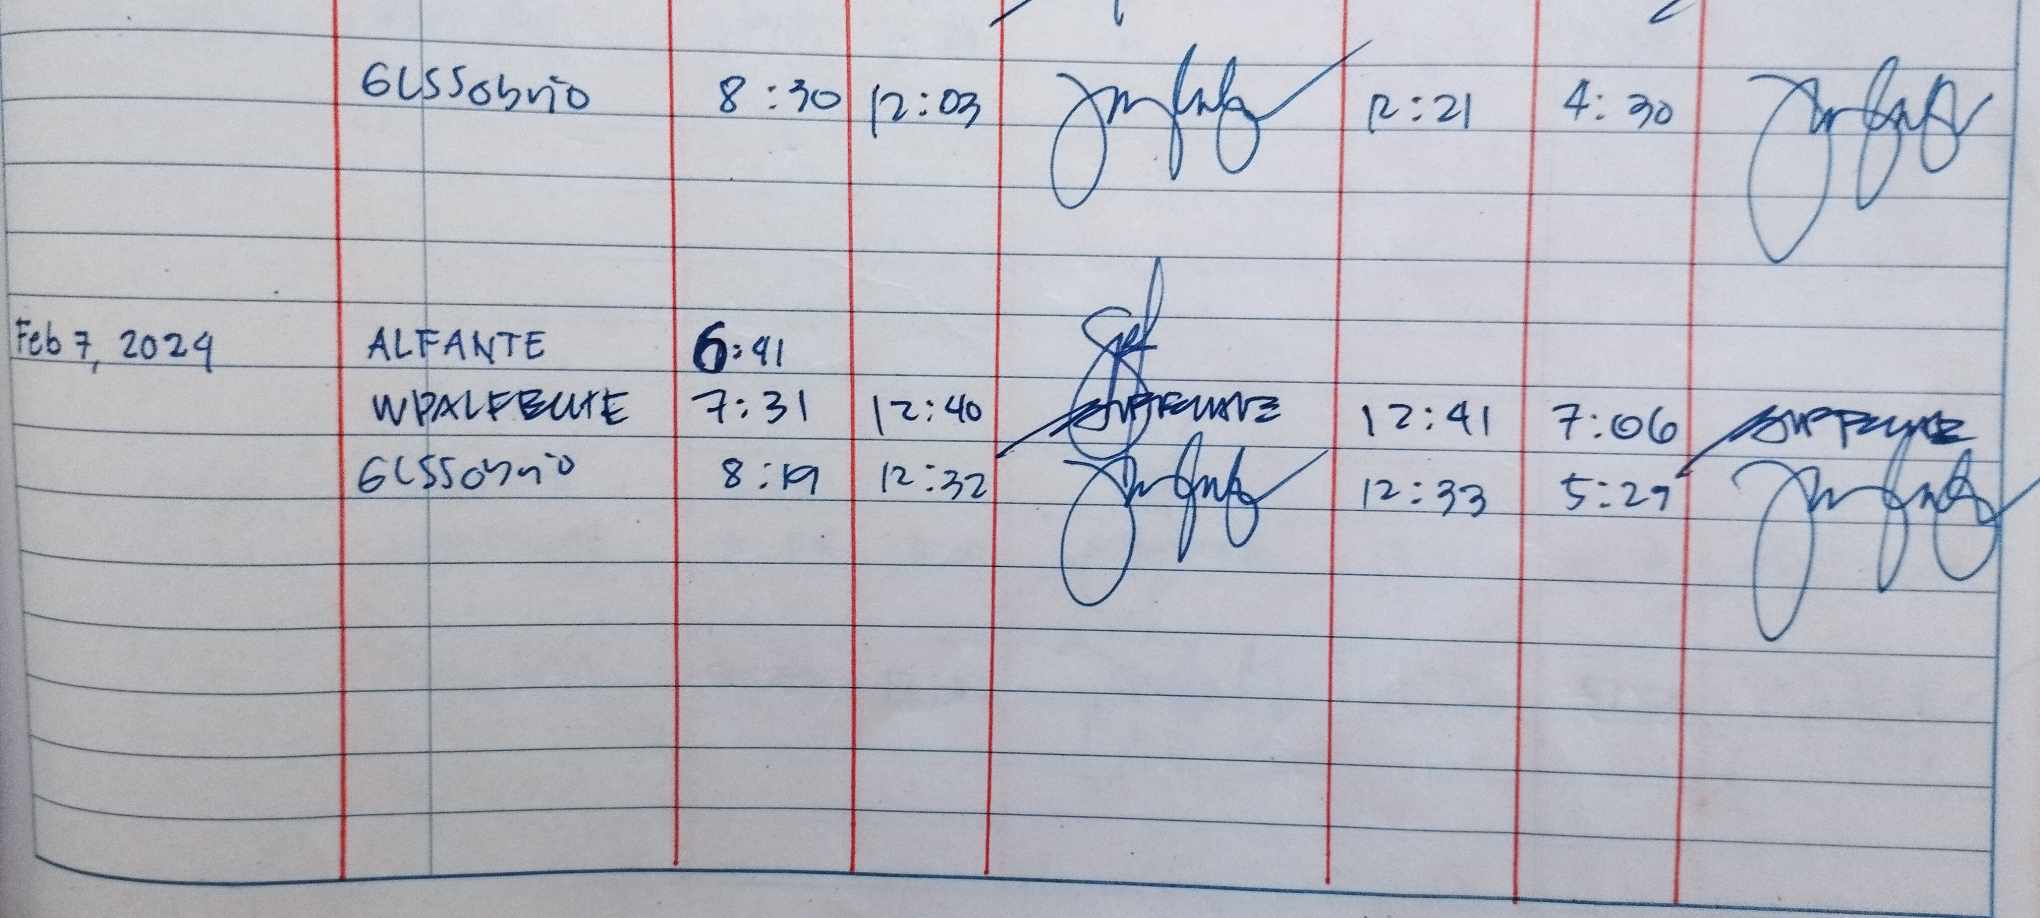 GLSSobrio 8:30 12:03 12:21 4:30
Feb 7, 2024 ALFANTE 6:41
WPALFECHE 7:31 12:40 12:41 7:06
GLSSobrio 8:19 12:32 12:33 5:29